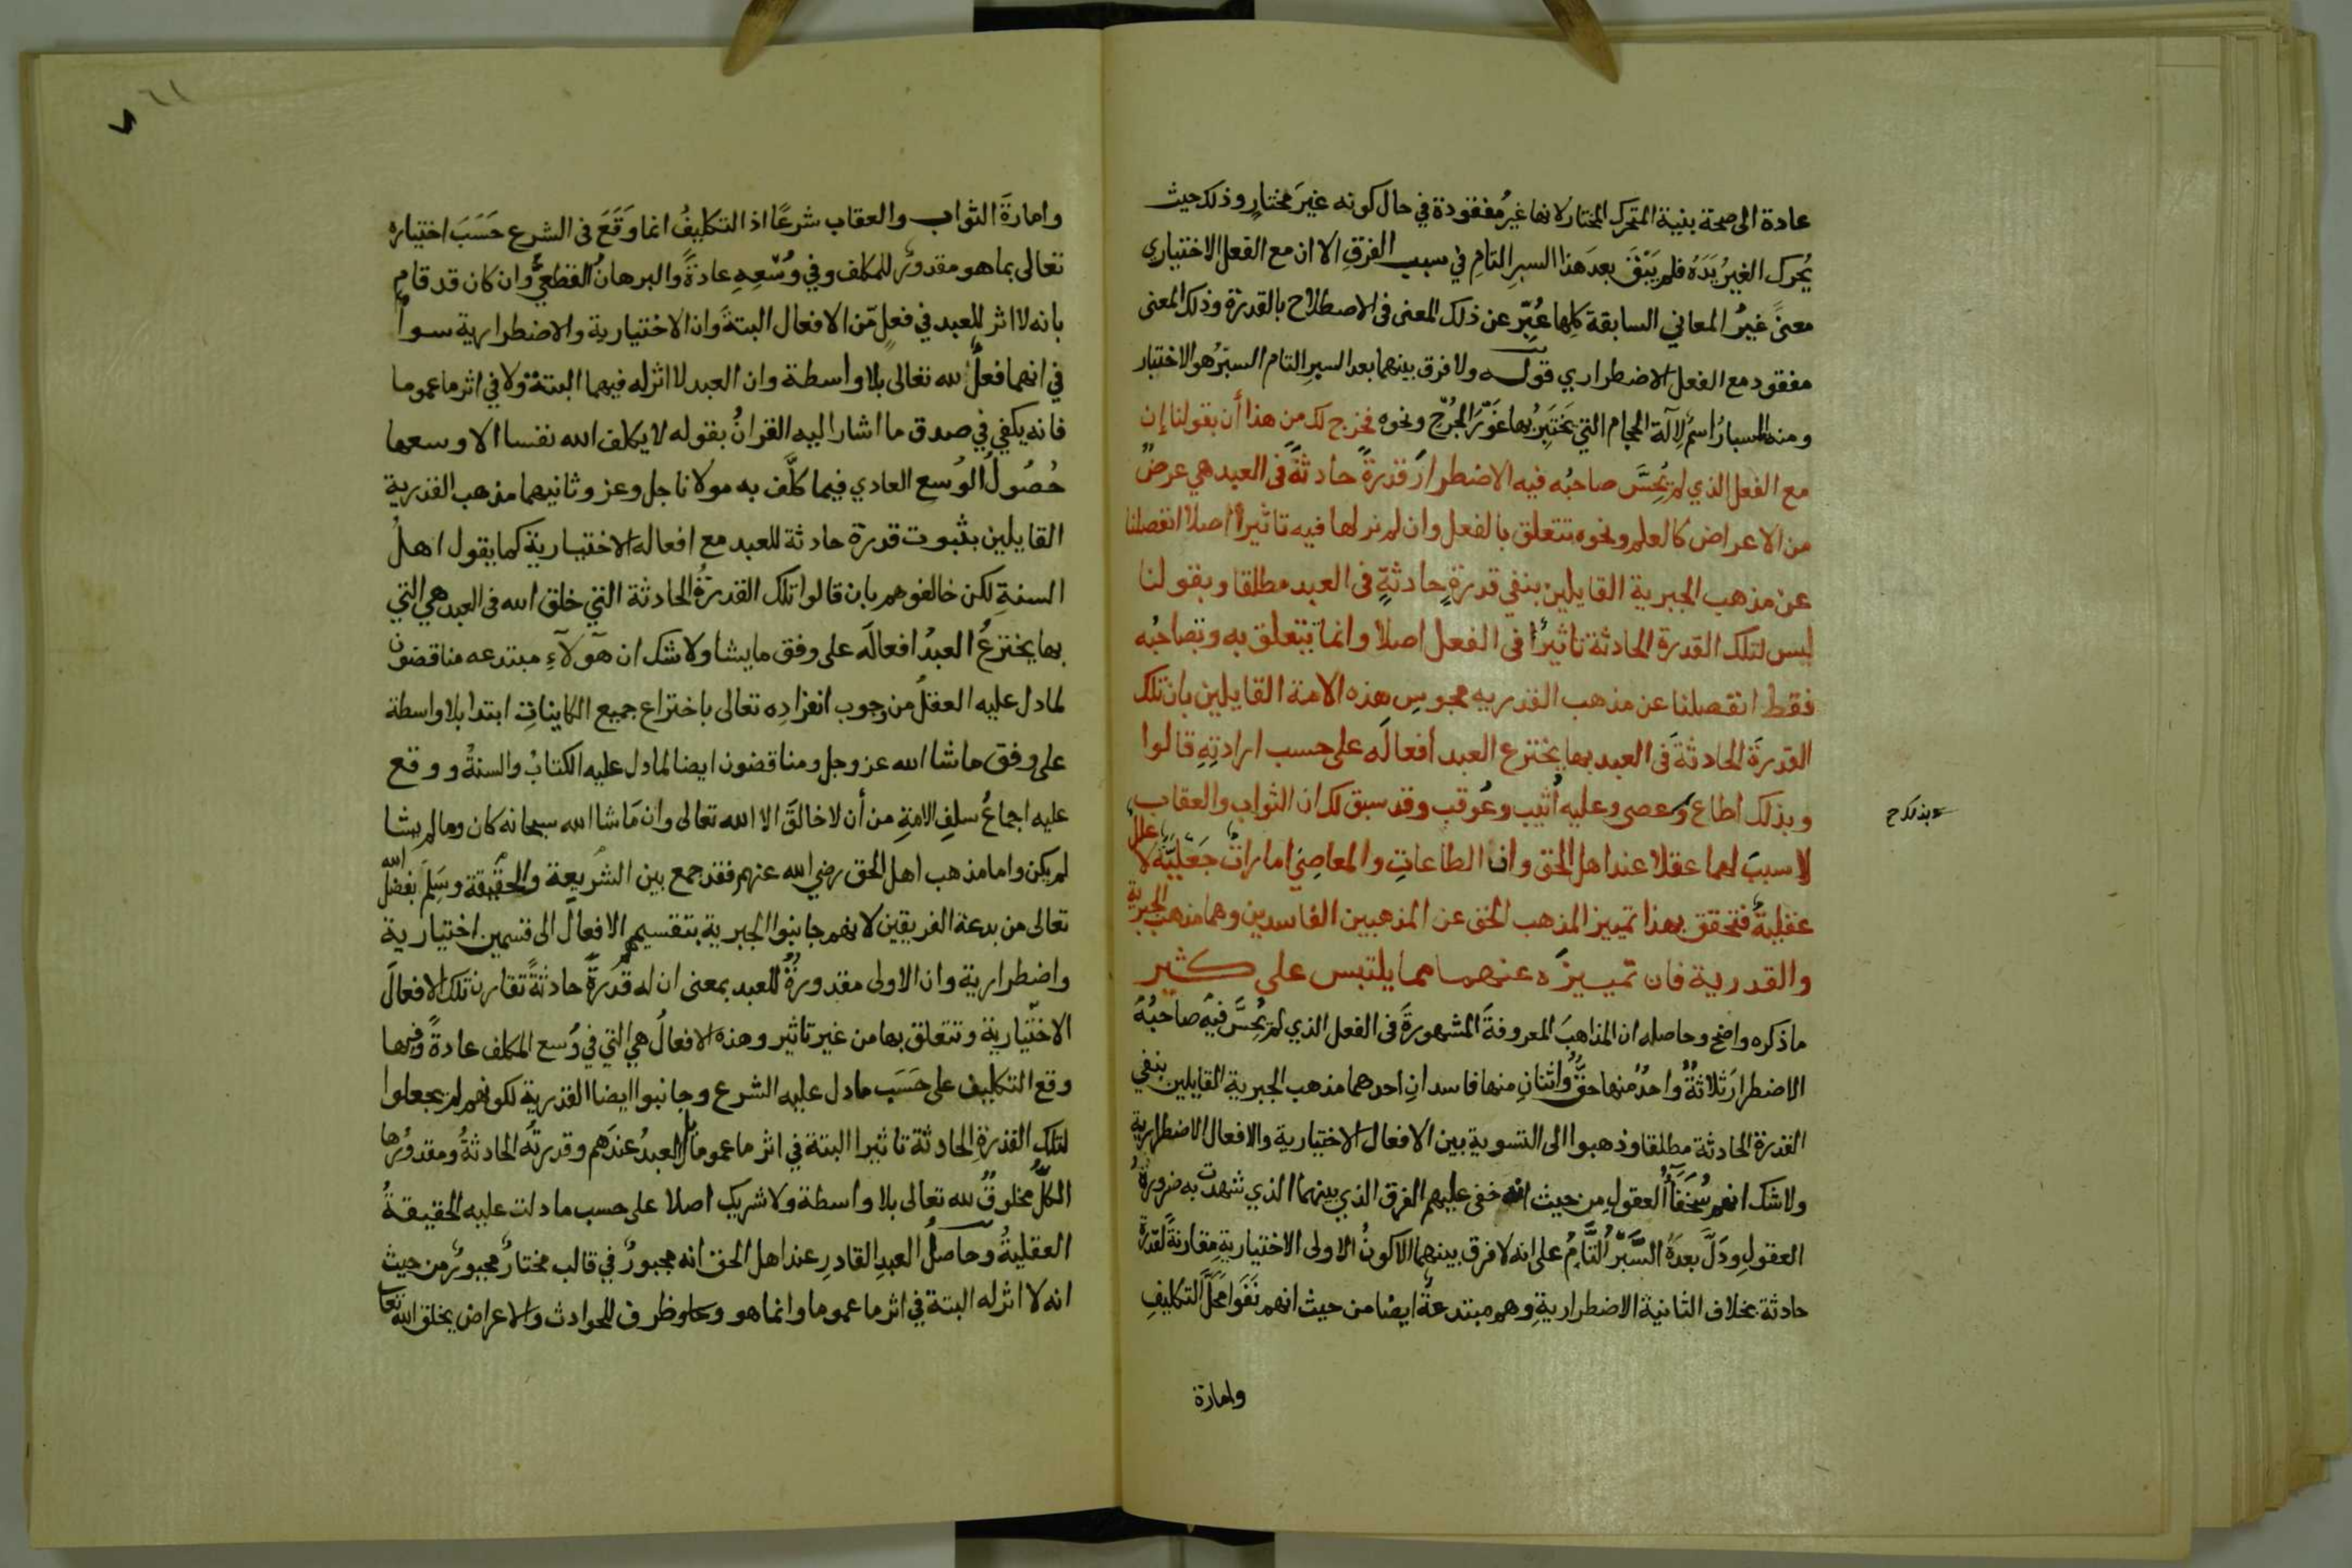 عادة الى صحة بنية المتحرك المختار لانها غيرُ مفقودة في حال كونه غيرَ مختارٍ وذلك حيث
يُحرك الغيرُ يَدَهُ فلم يَبْقَ بعدَ هذا السبرِ التامِ في سبب الفرقِ الا ان مع الفعل الاختياري
معنىً غيرُ المعاني السابقة كلِها عُبِّر عن ذلك المعنى في الاصطلاح بالقدرة وذلك المعنى
مفقود مع الفعل الاضطراري قوله ولا فرق بينهما بعد السبر التام السبرُ هو الاختبار
ومنه المسبارُ اسمٌ لآلة الحجام التي يَختبِرُ بها غَوْرَ الجُرْحِ ونحوه فخرج لك من هذا أن بقولنا إن
مع الفعل الذي لم يُحِسَّ صاحبُه فيه الاضطرارَ قدرةً حادثةً في العبد هي عرضٌ
من الاعراض كالعلم ونحوه تتعلق بالفعل وان لم نر لها فيه تاثيراً اصلا انفصلنا
عن مذهب الجبرية القايلين بنفي قدرةٍ حادثةٍ في العبد مطلقا وبقولنا
ليس لتلك القدرة الحادثة تاثيرًا في الفعل اصلا وانما تتعلق به وتصاحبُه
فقط انفصلنا عن مذهب القدريه مجوسِ هذه الامة القايلين بان تلك
القدرَة الحادثةَ في العبد بها يخترع العبد أفعالَه على حسب ارادتِهِ قالوا
وبذلك اطاع وعصى وعليه أُثيب وعُوقب وقد سبق لك ان الثواب والعقاب
لا سببَ لهما عقلا عند اهل الحق وان الطاعاتِ والمعاصِيَ اماراتٌ جَعْليَّةٌ لا علل
عقليةٌ فتحقق بهذا تمييز المذهب الحق عن المذهبين الفاسدين وهما مذهب الجبرية
والقدرية فان تمييزَه عنهما مما يلتبس على كثير
ماذكره واضح وحاصله ان المذاهبَ المعروفةَ المشهورةَ في الفعل الذي لم يُحِسَّ فيه صاحبُهُ
الاضطرارَ ثلاثةٌ واحدٌ منها حقٌّ واثنانِ منها فاسدانِ احدهما مذهب الجبرية القايلين بنفي
القدرة الحادثة مطلقا وذهبوا الى التسوية بين الافعال الاختيارية والافعال الاضطرارية
ولا شك انهم سُخَفَآءُ العقولِ من حيث انه خفى عليهم الفرق الذي بينهما الذي شهدت به ضرورةُ
العقولِ ودَلَّ بعدَهُ السَّبْرُ التَّامُّ على انه لا فرق بينهما الا كونُ الاولى الاختياريةِ مقارنةً لقدرة
حادثة بخلاف الثانية الاضطراريةِ وهم مبتدعةٌ ايضا من حيث انهم نَفَوا مَحَلَّ التكليفِ
وامارة
وامارةَ الثواب والعقاب شرعًا اذ التكليفُ انما وَقَعَ في الشرع حَسَبَ اختياره
تعالى بما هو مقدورٌ للمكلف وفي وُسْعِهِ عادةً والبرهانُ القطعيُّ وان كان قد قام
بانه لا اثر للعبد في فعلٍ مّن الافعال البتةَ وان الاختيارية والاضطرارية سواءٌ
في انهما فعلٌ لله تعالى بلا واسطة وان العبد لا اثر له فيهما البتة ولا في اثر ما عموما
فانه يكفي في صدق ما اشار اليه القرانُ بقوله لا يكلف الله نفسا الا وسعها
حُصُولُ الوُسعِ العادي فيما كلَّف به مولانا جل وعز وثانيهما مذهب القدرية
القايلين بثبوت قدرة حادثة للعبد مع افعاله الاختيارية كما يقول اهلُ
السنةِ لكن خالفوهم بان قالوا تلك القدرةُ الحادثة التي خلق الله في العبد هي التي
بها يخترعُ العبدُ افعالَه على وفق ما يشا ولا شك ان هَٓولآءِ مبتدعه مناقضون
لما دل عليه العقلُ من وجوب انفرادِه تعالى باختراع جميع الكايناتِ ابتدا بلا واسطة
على وفق ما شا الله عز وجل ومناقضون ايضا لما دل عليه الكتابُ والسنةُ ووقع
عليه اجماعُ سلفِ الامةِ من أن لا خالقَ الا الله تعالى وان مَا شا الله سبحانه كان وما لم يشا
لم يكن واما مذهب اهل الحق رضي الله عنهم فقد جمع بين الشريعة والحقيقة وسَلِمَ بفضل الله
تعالى من بدعة الفريقين لانهم جانبوا الجبرية بتقسيمهم الافعالَ الى قسمين اختيارية
واضطرارية وان الاولى مقدورةٌ للعبد بمعنى ان له قدرةً حادثةً تقارن تلك الافعالَ
الاختيارية وتتعلق بها من غير تاثير وهذه الافعالُ هي التي في وُسع المكلف عادةً وفيها
وقع التكليف على حَسَبِ ما دل عليه الشرع وجانبوا ايضا القدرية لكونهم لم يجعلوا
لتلك القدرةِ الحادثة تاثيرا البتة في اثر ما عموما بل العبدُ عندهم وقدرتُه الحادثةُ ومقدورُها
الكلُّ مخلوقٌ لله تعالى بلا واسطة ولا شريك اصلا على حسب ما دلت عليه الحقيقةُ
العقليةُ وحاصلُ العبدِ القادرِ عند اهل الحق انه مجبورٌ في قالب مختارٌ مجبورٌ من حيث
انه لا اثر له البتة في اثر ما عموما وانما هو وعاء وظرف للحوادث والاعراض يخلق الله تعا